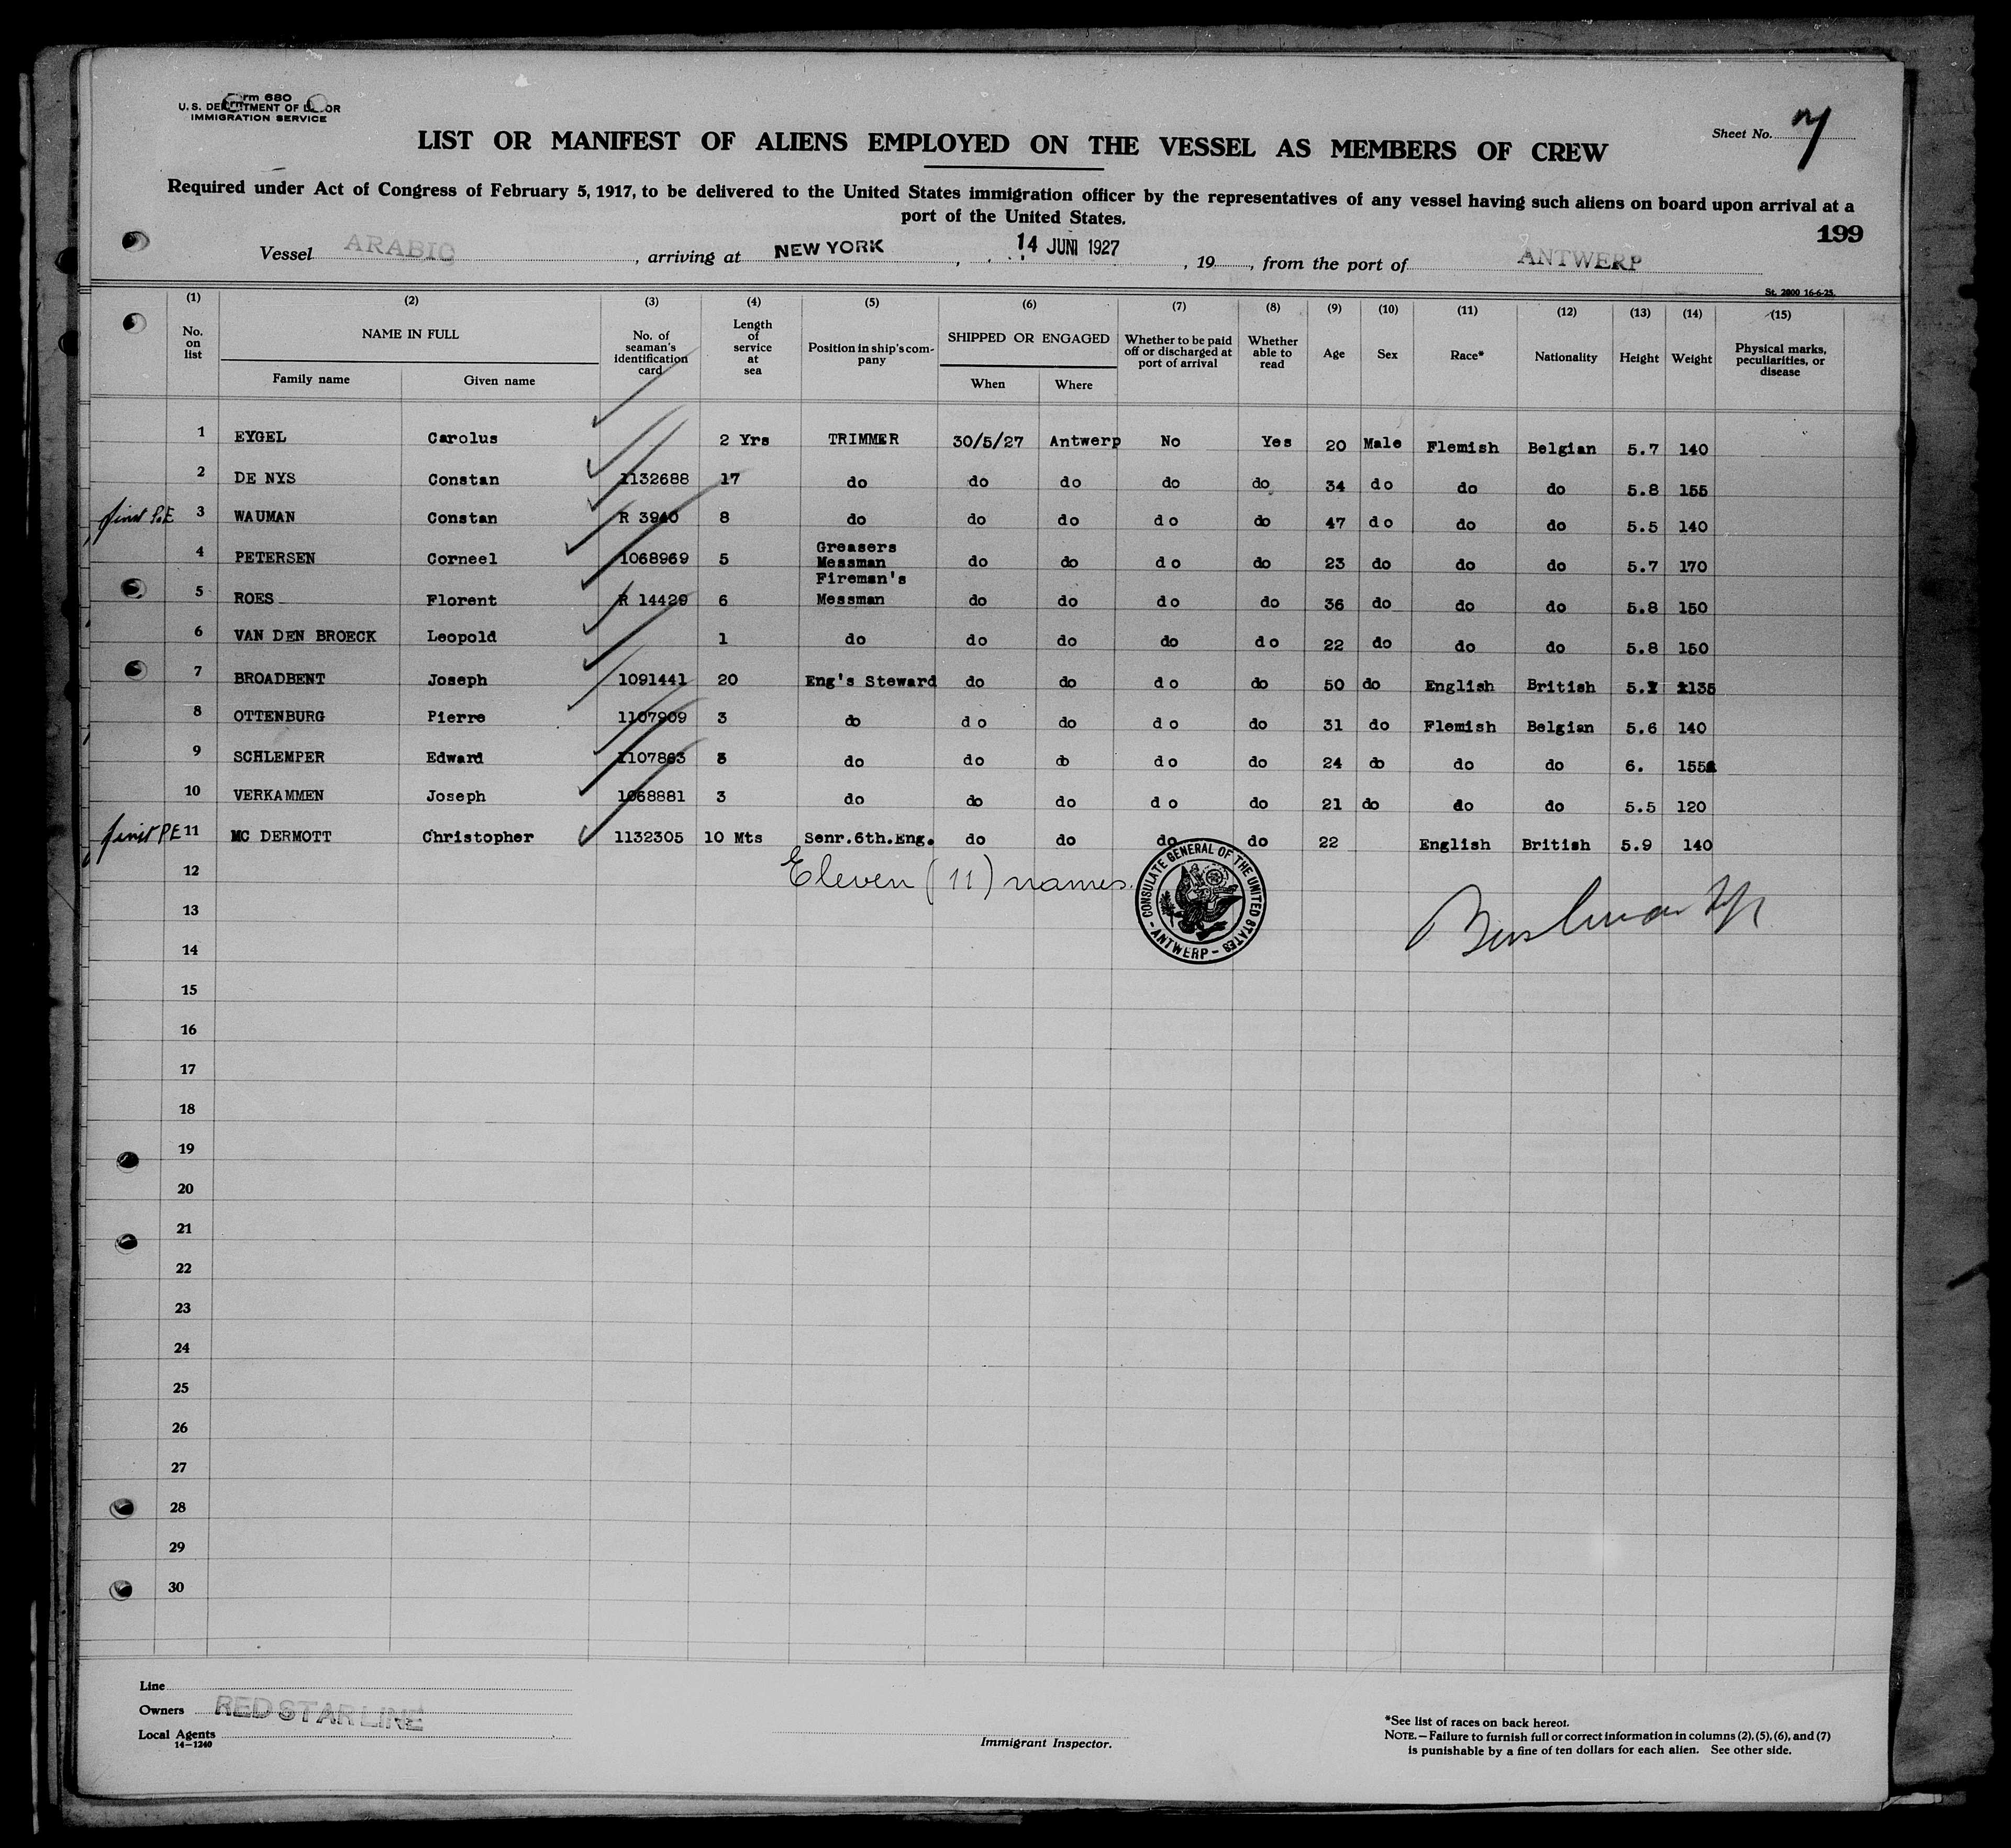 Form 680
U. S. DEPARTMENT OF LABOR
IMMIGRATION SERVICE
Sheet No. 7
LIST OR MANIFEST OF ALIENS EMPLOYED ON THE VESSEL AS MEMBERS OF CREW
Required under Act of Congress of February 5, 1917, to be delivered to the United States immigration officer by the representatives of any vessel having such aliens on board upon arrival at a
port of the United States.
199
Vessel ARABIC, arriving at NEW YORK, 14 JUNI 1927, 19, from the port of ANTWERP
St. 2000 16-6-25.
(1) (2) (3) (4) (5) (6) (7) (8) (9) (10) (11) (12) (13) (14) (15)
No. on list NAME IN FULL Family name Given name No. of seaman's identification card Length of service at sea Position in ship's company SHIPPED OR ENGAGED When Where Whether to be paid off or discharged at port of arrival Whether able to read Age Sex Race* Nationality Height Weight Physical marks, peculiarities, or disease
1 EYGEL Carolus 2 Yrs TRIMMER 30/5/27 Antwerp No Yes 20 Male Flemish Belgian 5.7 140
2 DE NYS Constan 1132688 17 do do do do do 34 do do do 5.8 155
3 WAUMAN Constan R 3940 8 do do do do do 47 do do do 5.5 140
4 PETERSEN Corneel 1068969 5 Greasers Messman do do do do 23 do do do 5.7 170
5 ROES Florent R 14429 6 Fireman's Messman do do do do 36 do do do 5.8 150
6 VAN DEN BROECK Leopold 1 do do do do do 22 do do do 5.8 150
7 BROADBENT Joseph 1091441 20 Eng's Steward do do do do 50 do English British 135
8 OTTENBURG Pierre 1107909 3 do do do do do 31 do Flemish Belgian 5.6 140
9 SCHLEMPER Edward 1107863 3 do do do do do 24 do do do 6. 155
10 VERKAMMEN Joseph 1068881 3 do do do do do 21 do do do 5.5 120
11 MC DERMOTT Christopher 1132305 10 Mts Senr.6th.Eng. do do do do 22 English British 5.9 140
12 Eleven (11) names.
CONSULATE GENERAL OF THE UNITED STATES - ANTWERP -
13
14
15
16
17
18
19
20
21
22
23
24
25
26
27
28
29
30
Line
Owners RED STAR LINE
Local Agents
14—1240
Immigrant Inspector.
*See list of races on back hereof.
NOTE.—Failure to furnish full or correct information in columns (2), (5), (6), and (7)
is punishable by a fine of ten dollars for each alien. See other side.